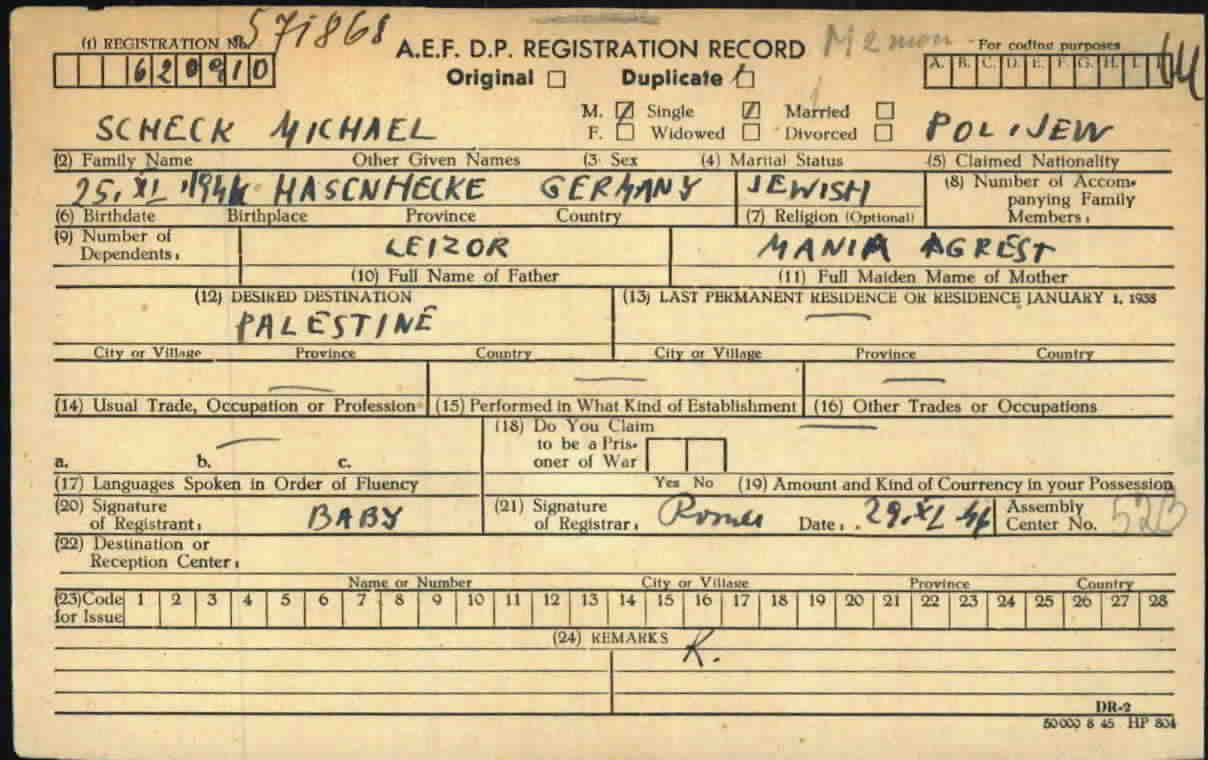 (1) REGISTRATION No. 571868
6 2 0 9 1 0
A.E.F. D.P. REGISTRATION RECORD
Original □ Duplicate □
For coding purposes
A. B. C. D. E. F. G. H. I.
M. ☑ Single ☑ Married □
F. □ Widowed □ Divorced □
SCHECK MICHAEL POL. JEW
(2) Family Name Other Given Names (3 Sex (4) Marital Status (5) Claimed Nationality
25. XI HASENHECKE GERMANY JEWISH
(8) Number of Accom-
panying Family
Members:
(6) Birthdate Birthplace Province Country (7) Religion (Optional)
(9) Number of
Dependents:
LEIZOR MANIA AGREST
(10) Full Name of Father (11) Full Maiden Mame of Mother
(12) DESIRED DESTINATION (13) LAST PERMANENT RESIDENCE OR RESIDENCE JANUARY 1, 1938
PALESTINE —
City or Village Province Country City or Village Province Country
— — —
(14) Usual Trade, Occupation or Profession (15) Performed in What Kind of Establishment (16) Other Trades or Occupations
(18) Do You Claim
to be a Pris-
oner of War
—
a. b. c.
(17) Languages Spoken in Order of Fluency Yes No (19) Amount and Kind of Courrency in your Possession
(20) Signature
of Registrant: BABY
(21) Signature
of Registrar: Date: 29. XI. 46
Assembly
Center No. 523
(22) Destination or
Reception Center:
Name or Number City or Village Province Country
(23)Code 1 2 3 4 5 6 7 8 9 10 11 12 13 14 15 16 17 18 19 20 21 22 23 24 25 26 27 28
for Issue
(24) REMARKS
R.
DR-2
50 000 8 45 HP 804